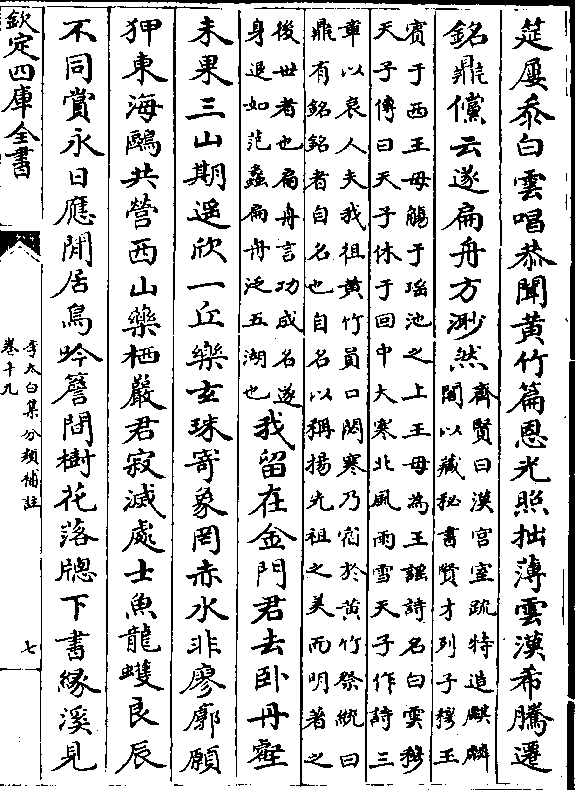 筵屢忝白雲唱恭聞黄竹篇恩光照拙薄雲漢希騰遷
銘鼎儻云遂扁舟方渺然齊賢曰漢宫室疏特造麒麟
閣以藏秘書賢才列子穆王
賔于西王母觴于瑶池之上王母為王謡詩名白雲穆
天子傳曰天子休于回中大寒北風雨雪天子作詩三
章以哀人夫我祖黄竹員口閟寒乃宿於黄竹祭統曰
鼎有銘銘者自名也自名以稱揚先祖之美而明著之
後世者也扁舟言功成名遂
身退如范蠡扁舟泛五湖也我留在金門君去卧丹壑
未果三山期遥欣一丘樂玄珠寄象罔赤水非廖廓願
狎東海鷗共營西山藥栖巖君寂滅處士魚龍蠖良辰
不同賞永日應閒居鳥吟簷間樹花落牕下書緣溪見
欽定四庫全書
李太白集分類補註
卷十九
七